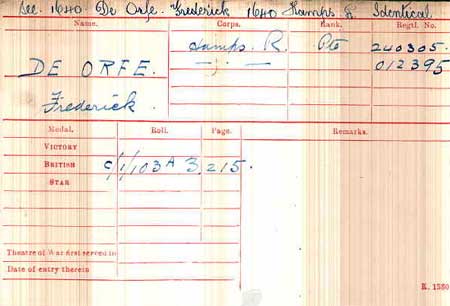 See 1640 De Orfe. Frederick 1640 Hamps. R. Identical
Name. Corps. Rank. Regtl. No.
DE ORFE. Hamps. R. Pte 240305.
— " — 012395
Frederick.
Medal. Roll. Page. Remarks.
VICTORY
BRITISH C/1/103A3 215.
STAR
Theatre of War first served in
Date of entry therein
K. 1380